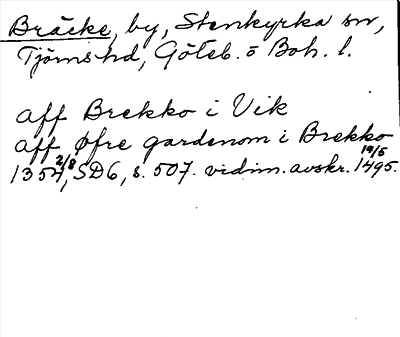 Bräcke, by, Stenkyrka sn,
Tjörns hd, Göteb. o Boh. l.
aff Brekko i Vik
aff Øfre gardenom i Brekko
1354 2/8, SD6, s. 507. vidim. avskr. 1495 19/5.